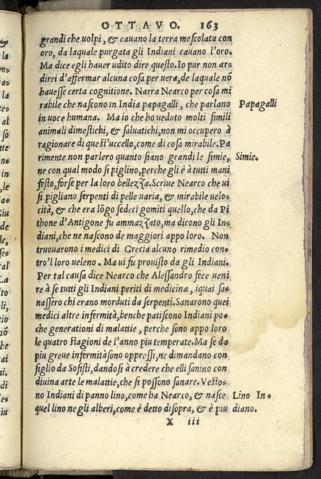 OTTAVO. 163
grandi che uolpi, & cauano la terra mescolata con
oro, da laquale purgata gli Indiani cauano l'oro.
Ma dice egli hauer udito dire questo. Io pur non ar-
direi d'affermar alcuna cosa per uera, de laquale nō
hauesse certa cognitione. Narra Nearco per cosa mi
rabile che nascono in India papagalli, che parlano
Papagalli
in uoce humana. Ma io che ho ueduto molti simili
animali dimestichi, & saluatichi, non mi occupero à
ragionare di quest'uccello, come di cosa mirabile. Pa
rimente non parlero quanto siano grandi le simie,
Simie.
ne con qual modo si piglino, perche gli è à tutti mani
festo, forse per la loro bellezza. Scriue Nearco che ui
si pigliano serpenti di pelle uaria, & mirabile uelo-
cità, & che era lōgo sedeci gomiti quello, che da Pi
thone d'Antigone fu ammazzato, ma dicono gli In-
diani, che ne nascono de maggiori apo loro. Non
truouarono i medici di Grecia alcuno rimedio con-
tro'l loro ueleno. Ma ui fu prouisto da gli Indiani.
Per tal causa dice Nearco che Alessandro fece ueni
re à se tutti gli Indiani periti di medicina, iquai sa-
nassero chi erano morduti da serpenti. Sanarono quei
medici altre infermità, benche patiscono Indiani po-
che generationi di malattie, perche sono apo loro
le quattro stagioni de l'anno piu temperate. Ma se da
piu greue infermità sono oppressi, ne dimandano con
siglio da Sofisti, dandosi à credere che elli sanino con
diuina arte le malattie, che si possono sanare. Vesto-
no Indiani di panno lino, come ha Nearco, & nasce
Lino In-
quel lino ne gli alberi, come è detto di sopra, & è piu
diano.
X iii